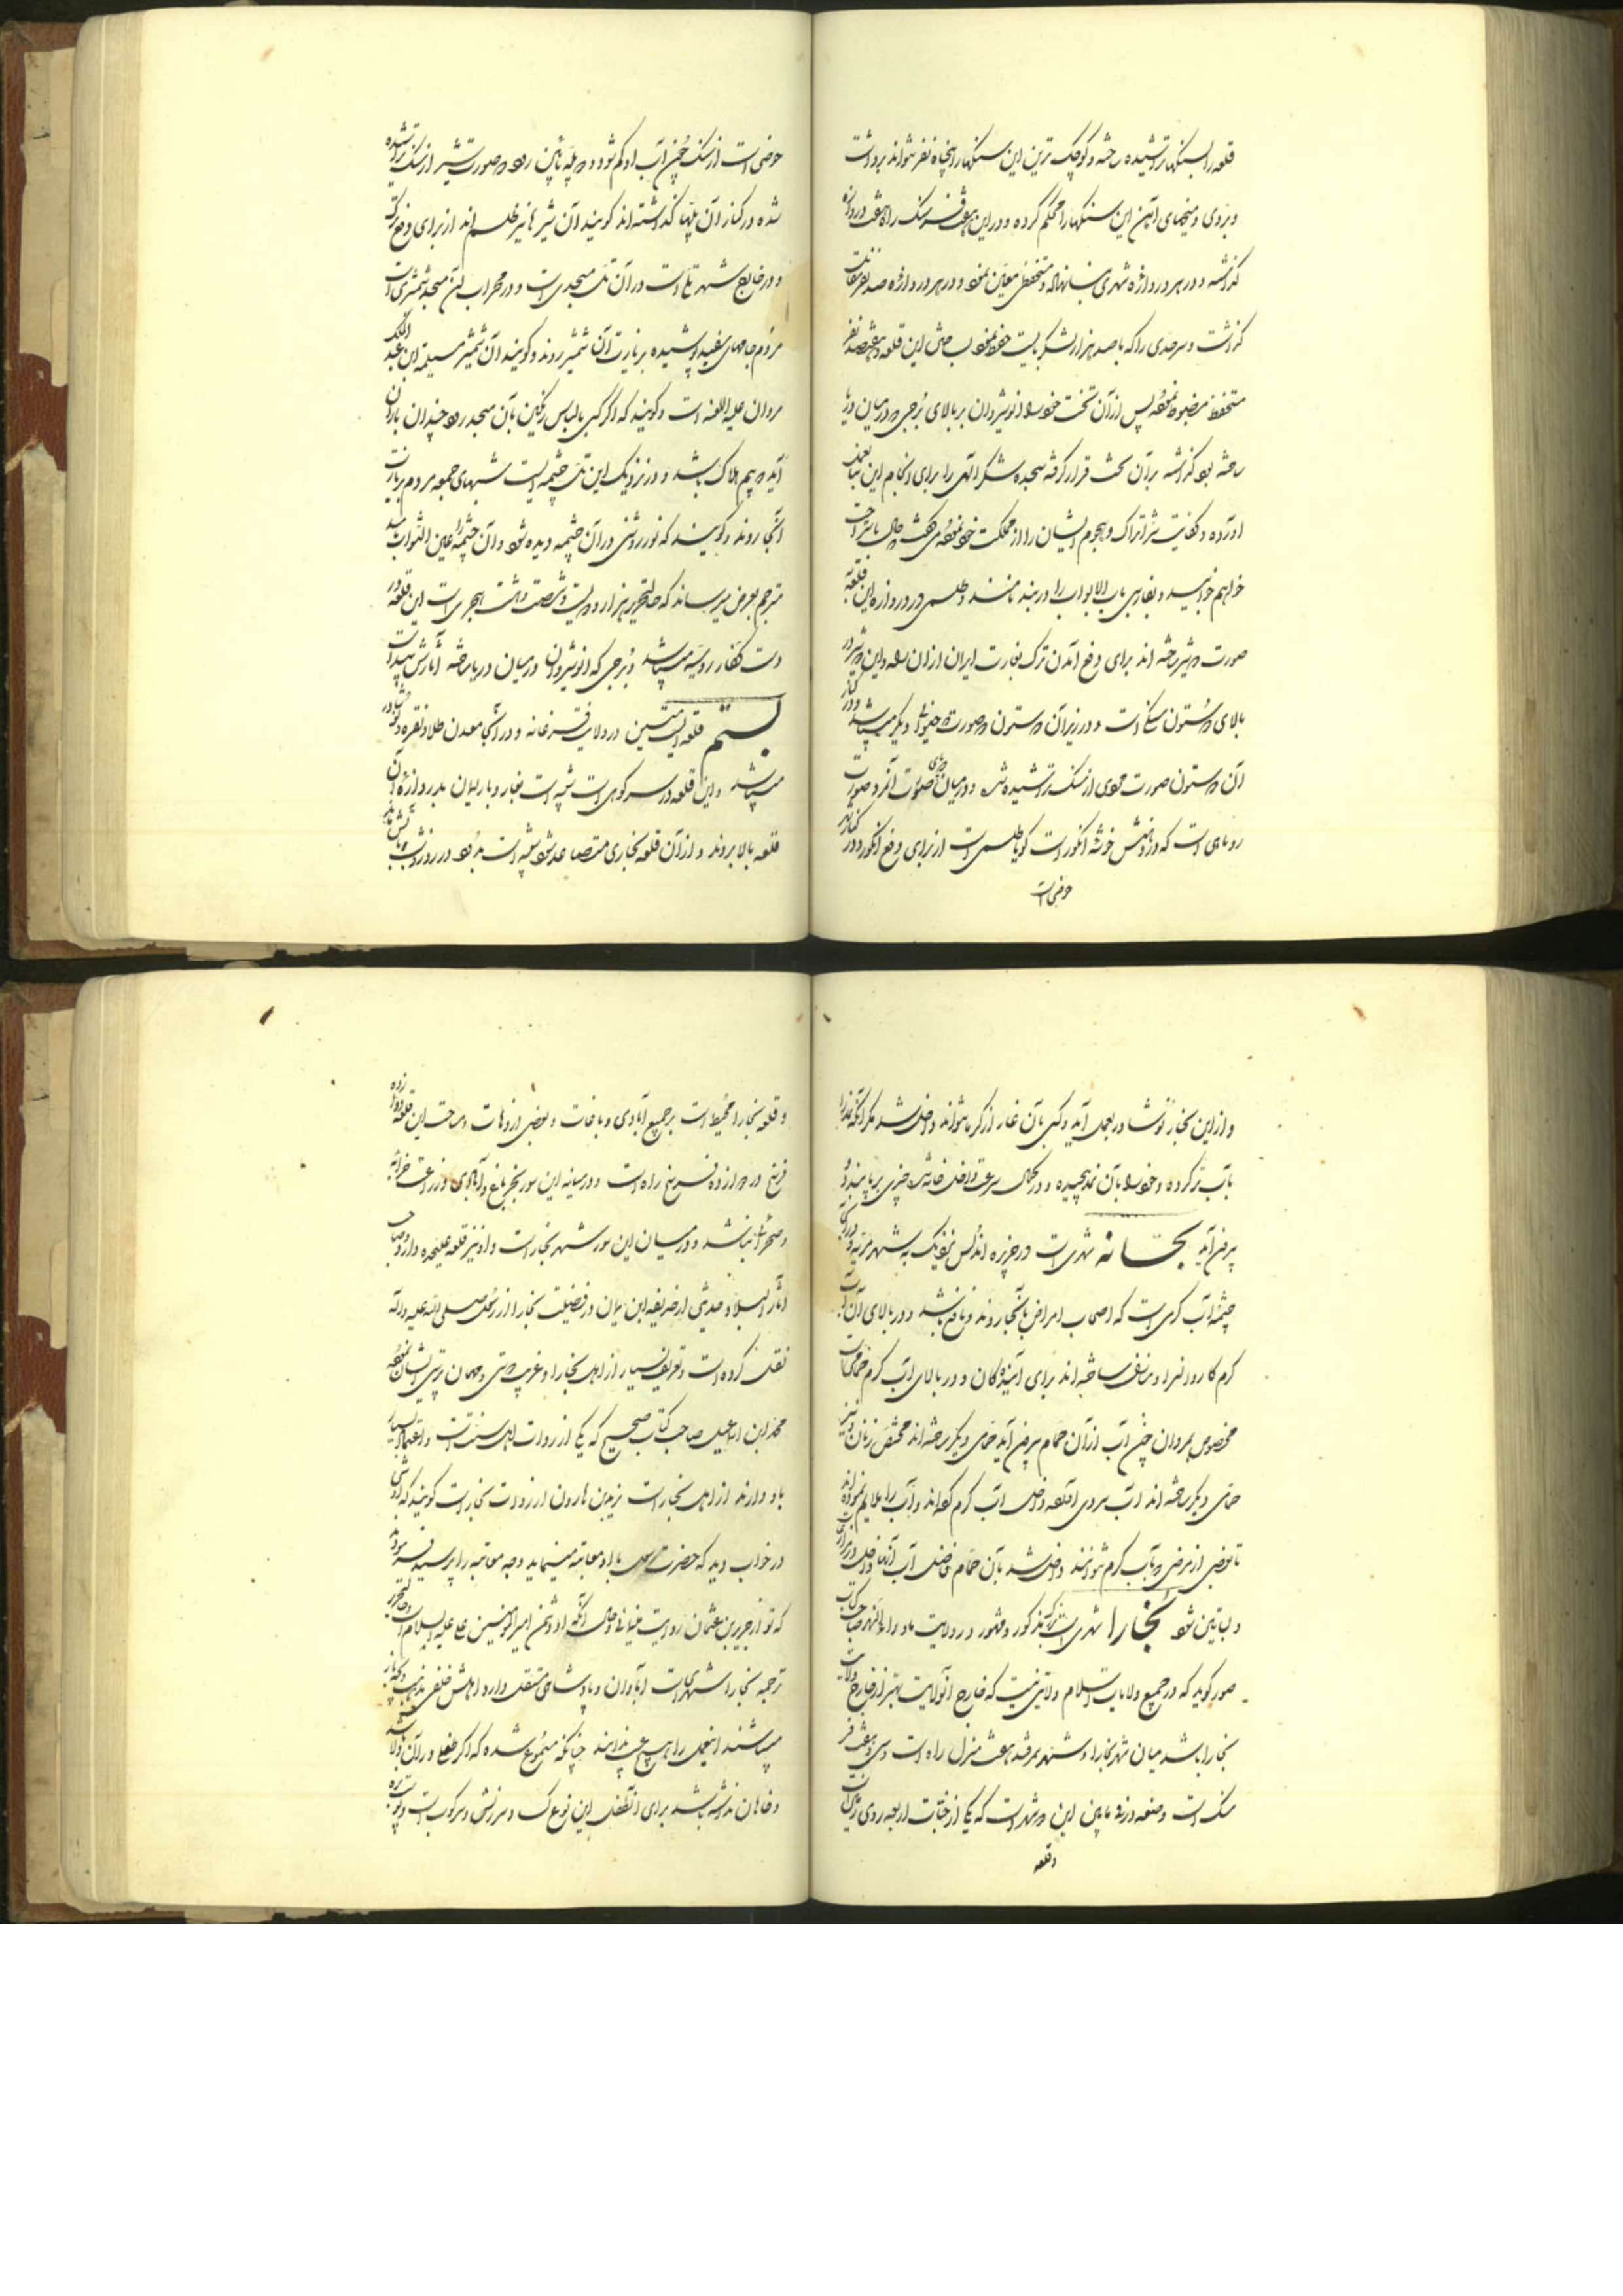 قلعه را بسنگهای تراشیده ساخته و کوچک ترین این سنگها را پنجاه نفر نتواند برداشت
و بروی و میخهای آهن این سنگها را محکم کرده و در این هفت فرسنگ راه هفت دروازه
گذاشته و در هر دروازه شهری بنا نهاده و مستحفظی معین نموده و در هر دروازه صد نفر
گذاشت و سرحدی را که با صد هزار لشکر بایست حفظ نمود بساختن این قلعه و هفتصد نفر
مستحفظ مضبوط نموده پس از آن تخت خود را انوشیروان بر بالای برجی که در میان دریا
ساخته بود گذاشته بر آن تخت قرار گرفته سجده شکر الهی را برای انجام این بنا بعمل
آورده و کفایت شر اتراک و هجوم ایشان را از مملکت خود نموده می گفت حال باستراحت
خواهم خوابید و بفارسی باب الابواب را دربند نامند و طلسمی در دروازه این قلعه
صورت دو شیر ساخته اند برای دفع آمدن ترک بغارت ایران از آن راه و این دو شیر در
بالای دو ستون سنگی است و در زیر آن دو ستون دو صورت حیوان دیگر میباشد و در کنار
آن دو ستون صورت مردی از سنگ تراشیده شده و در میان دو پای صورت آنمرد صورت
روباهی است که در دهنش خوشه انگور است گویا طلسمی است از برای دفع انگور و در کنار شهر
حوضی است
حوضی است از سنگ چون آب او کم شود دو پله پائین رود دو صورت شیر از سنگ تراشیده
شده در کنار آن پلها گذاشته اند گویند آن شیرها نیز طلسم اند از برای دفع ترک
و در خارج شهر تلی است در آن تل مسجدی است و در محراب آن مسجد شمشیری است
مردم جامهای سفید پوشیده بزیارت آن شمشیر روند و گویند آن شمشیر مسلمة ابن عبدالملک
مروان علیه اللعنه است و گویند که اگر کسی با لباس رنگین بآن مسجد رود چندان باران
آید که بیم هلاک باشد و در نزدیک این تل چشمه ایست شبهای جمعه مردم بزیارت
آنجا روند و گویند که نور روشنی در آن چشمه دیده شود و آن چشمه را عین الثواب نامند
مترجم بعرض میرساند که حال تحریر هزار و دویست و شصت و هشت هجری است این قلعه در
دست کفار روسیه میباشد و برجی که انوشیروان در میان دریا ساخته آثارش پیداست
بستم قلعه ایست متین در ولایت فرغانه و در آنجا معدن طلا و نقره و نوشادر
میباشد و این قلعه در سر کوهی است شبیه است بغار و بارلیان بدروازه آن
قلعه بالا بروند و از آن قلعه بخاری متصاعد شود شبیه است بدود در روز و شب
و از این بخار نوشادر بعمل آید و کسی بآن غار از گرما نتواند داخل شد مگر آنکه نمد را
بآب تر کرده و خود را بآن نمد پیچیده و در کمال سرعت داخل خانه شده چیزی برباید و
بیرون آید بجانه شهری است در جزیره اندلس نزدیک به شهر مریه و در آنجا
چشمه آب گرمی است که اصحاب امراض بآنجا روند و نافع باشد و در بالای آن آب
گرم کاروانسرا و منازل ساخته اند برای آیندگان و در بالای آب گرم حمامی است
مخصوص مردان چون آب از آن حمام بیرون آید حمامی دیگر ساخته اند مختص زنان و نیز
حمامی دیگر ساخته اند آب سردی آورده داخل آب گرم کرده اند و آب را ملایم نموده اند
تا بعضی از مرضی که بآب گرم نتوانند داخل شد بآن حمام فاضل آب آنها داخل مزارع
و بساتین شود بخارا شهری است بزرگ مذکور و مشهور در ولایت ماوراء النهر صاحب کتاب
صور گوید که در جمیع ولایات اسلام ولایتی نیست که خارج آنولایت بهتر از خارج ولایت
بخارا باشد میان شهر بخارا و شهر سمرقند هفت منزل راه است و سی و هفت فر
سنگ است و صغد در ما بین این دو شهر است که یکی از جنات اربعه روی زمین است
و قلعه
و قلعه بخارا محیط است بر جمیع آبادی و باغات و بعضی از دهات و مساحت این قلعه دوازده
فرسخ در دوازده فرسخ راه است و در میانه این سور بجز باغ و آبادی و زراعت خرابه
و صحرائی نباشد و در میان این سور شهر بخارا است و او نیز قلعه علیحده دارد و صاحب
آثار البلاد حدیثی از حذیفه ابن یمان در فضیلت بخارا از رسول صلی الله علیه و آله
نقل کرده است و تعریف بسیار از اهل بخارا و غریب دوستی و مهمان پرستی ایشان نموده
محمد ابن اسماعیل صاحب کتاب صحیح که یکی از روات اهل سنت است و اعتماد بسیار
باو دارند از اهل بخارا است یزید بن هارون از روات بخارا است گویند که او شبی
در خواب دید که حضرت رسول با او معاتبه مینماید وجه معاتبه را پرسید فرمودند
که تو از حریر بن عثمان روایت مینمائی و حال آنکه او دشمن امیر المؤمنین علی علیه السلام است
ترجمه بخارا شهری است آبادان و پادشاهی مستقل دارد اهلش حنفی مذهب و بچه باز
میباشند این عمل را هیچ عیب ندانند چنانکه مسموع شده که اگر طفلی در آن ولا
و خاهان نداشته باشد برای آنطفل این نوع کسر و سرزنش و سرکوب است